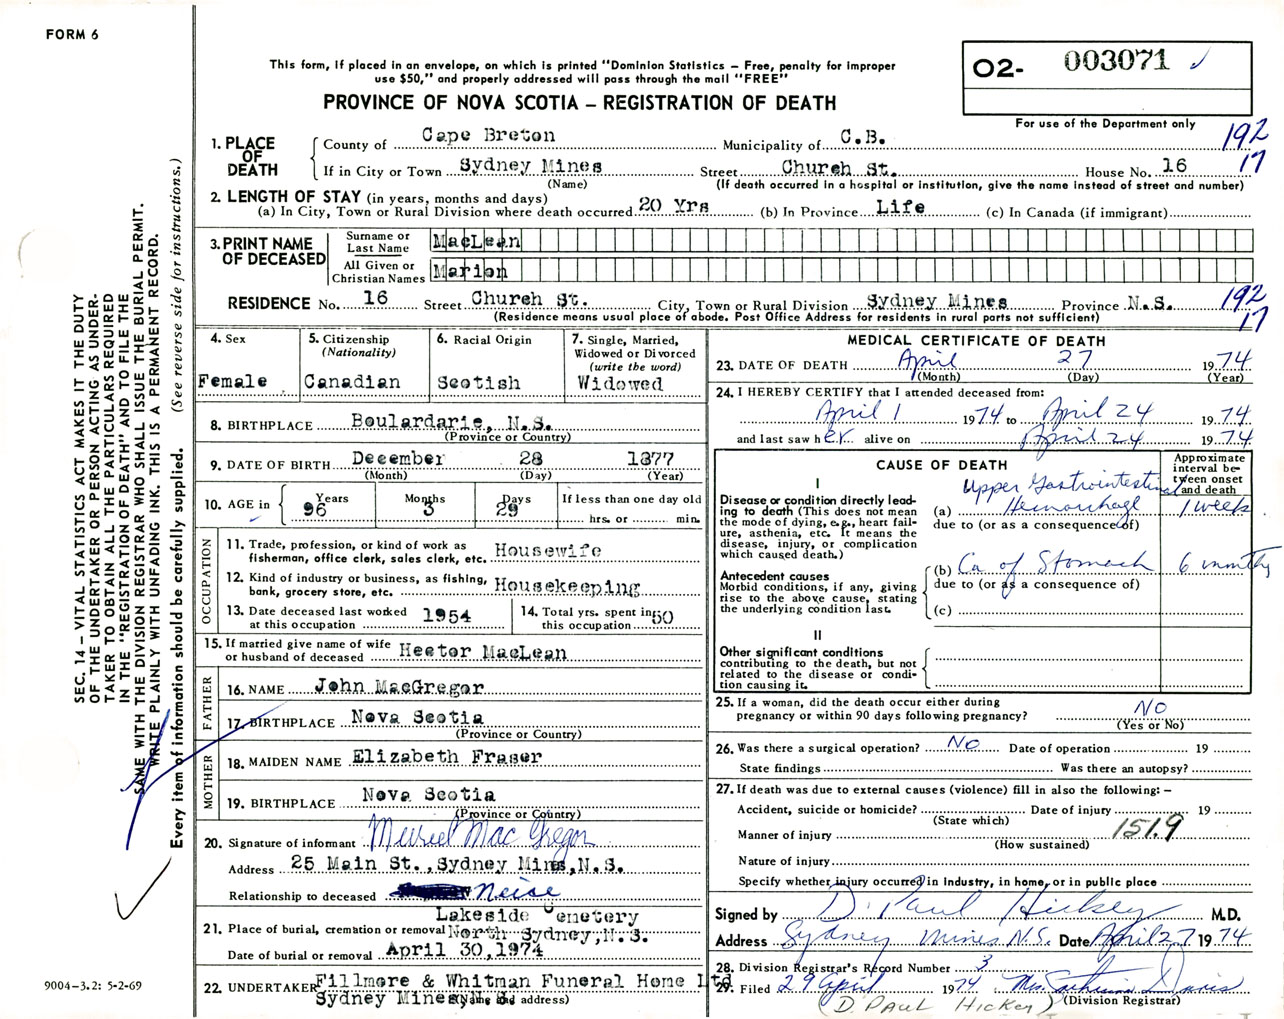 FORM 6
This form, if placed in an envelope, on which is printed "Dominion Statistics – Free, penalty for improper
use $50," and properly addressed will pass through the mail "FREE"
PROVINCE OF NOVA SCOTIA – REGISTRATION OF DEATH
02- 003071
For use of the Department only
192
17
1. PLACE OF DEATH
County of Cape Breton Municipality of C.B.
If in City or Town Sydney Mines Street Church St. House No. 16
(Name) (If death occurred in a hospital or institution, give the name instead of street and number)
2. LENGTH OF STAY (in years, months and days)
(a) In City, Town or Rural Division where death occurred 20 Yrs (b) In Province Life (c) In Canada (if immigrant)
3. PRINT NAME OF DECEASED
Surname or Last Name MacLean
All Given or Christian Names Marion
RESIDENCE No. 16 Street Church St. City, Town or Rural Division Sydney Mines Province N.S.
(Residence means usual place of abode. Post Office Address for residents in rural parts not sufficient)
192
17
4. Sex
Female
5. Citizenship
(Nationality)
Canadian
6. Racial Origin
Scotish
7. Single, Married,
Widowed or Divorced
(write the word)
Widowed
8. BIRTHPLACE Boulardarie, N.S.
(Province or Country)
9. DATE OF BIRTH December 28 1877
(Month) (Day) (Year)
10. AGE in Years 96 Months 3 Days 29
If less than one day old
hrs. or min.
OCCUPATION
11. Trade, profession, or kind of work as
fisherman, office clerk, sales clerk, etc. Housewife
12. Kind of industry or business, as fishing,
bank, grocery store, etc. Housekeeping
13. Date deceased last worked
at this occupation 1954
14. Total yrs. spent in
this occupation 50
15. If married give name of wife
or husband of deceased Hector MacLean
FATHER
16. NAME John MacGregor
17. BIRTHPLACE Nova Scotia
(Province or Country)
MOTHER
18. MAIDEN NAME Elizabeth Fraser
19. BIRTHPLACE Nova Scotia
(Province or Country)
20. Signature of informant Muriel MacGregor
Address 25 Main St., Sydney Mines, N.S.
Relationship to deceased Neice
21. Place of burial, cremation or removal Lakeside Cemetery
North Sydney, N.S.
Date of burial or removal April 30, 1974
22. UNDERTAKER Fillmore & Whitman Funeral Home Ltd
Sydney Mines, N.S.
(Name and address)
MEDICAL CERTIFICATE OF DEATH
23. DATE OF DEATH April 27 1974
(Month) (Day) (Year)
24. I HEREBY CERTIFY that I attended deceased from:
April 1 1974 to April 24 1974
and last saw her alive on April 24 1974
CAUSE OF DEATH
Approximate
interval be-
tween onset
and death
I
Disease or condition directly lead-
ing to death (This does not mean
the mode of dying, e.g., heart fail-
ure, asthenia, etc. It means the
disease, injury, or complication
which caused death.)
(a) Upper Gastrointestinal
Hemorrhage 1 week
due to (or as a consequence of)
Antecedent causes
Morbid conditions, if any, giving
rise to the above cause, stating
the underlying condition last.
(b) Ca of Stomach 6 months
due to (or as a consequence of)
(c)
II
Other significant conditions
contributing to the death, but not
related to the disease or condi-
tion causing it.
25. If a woman, did the death occur either during
pregnancy or within 90 days following pregnancy? NO
(Yes or No)
26. Was there a surgical operation? NO Date of operation 19
State findings Was there an autopsy?
27. If death was due to external causes (violence) fill in also the following: –
Accident, suicide or homicide? Date of injury 19
(State which)
Manner of injury 151.9
(How sustained)
Nature of injury
Specify whether injury occurred in Industry, in home, or in public place
Signed by D. Paul Hickey M.D.
Address Sydney Mines N.S. Date April 27 1974
28. Division Registrar's Record Number 3
29. Filed 29 April 1974 Mrs. Catherine Davis
(D. PAUL HICKEY) (Division Registrar)
SEC. 14 – VITAL STATISTICS ACT MAKES IT THE DUTY
OF THE UNDERTAKER OR PERSON ACTING AS UNDER-
TAKER TO OBTAIN ALL THE PARTICULARS REQUIRED
IN THE "REGISTRATION OF DEATH" AND TO FILE THE
SAME WITH THE DIVISION REGISTRAR WHO SHALL ISSUE THE BURIAL PERMIT.
WRITE PLAINLY WITH UNFADING INK. THIS IS A PERMANENT RECORD.
Every item of information should be carefully supplied. (See reverse side for instructions.)
9004-3.2: 5-2-69